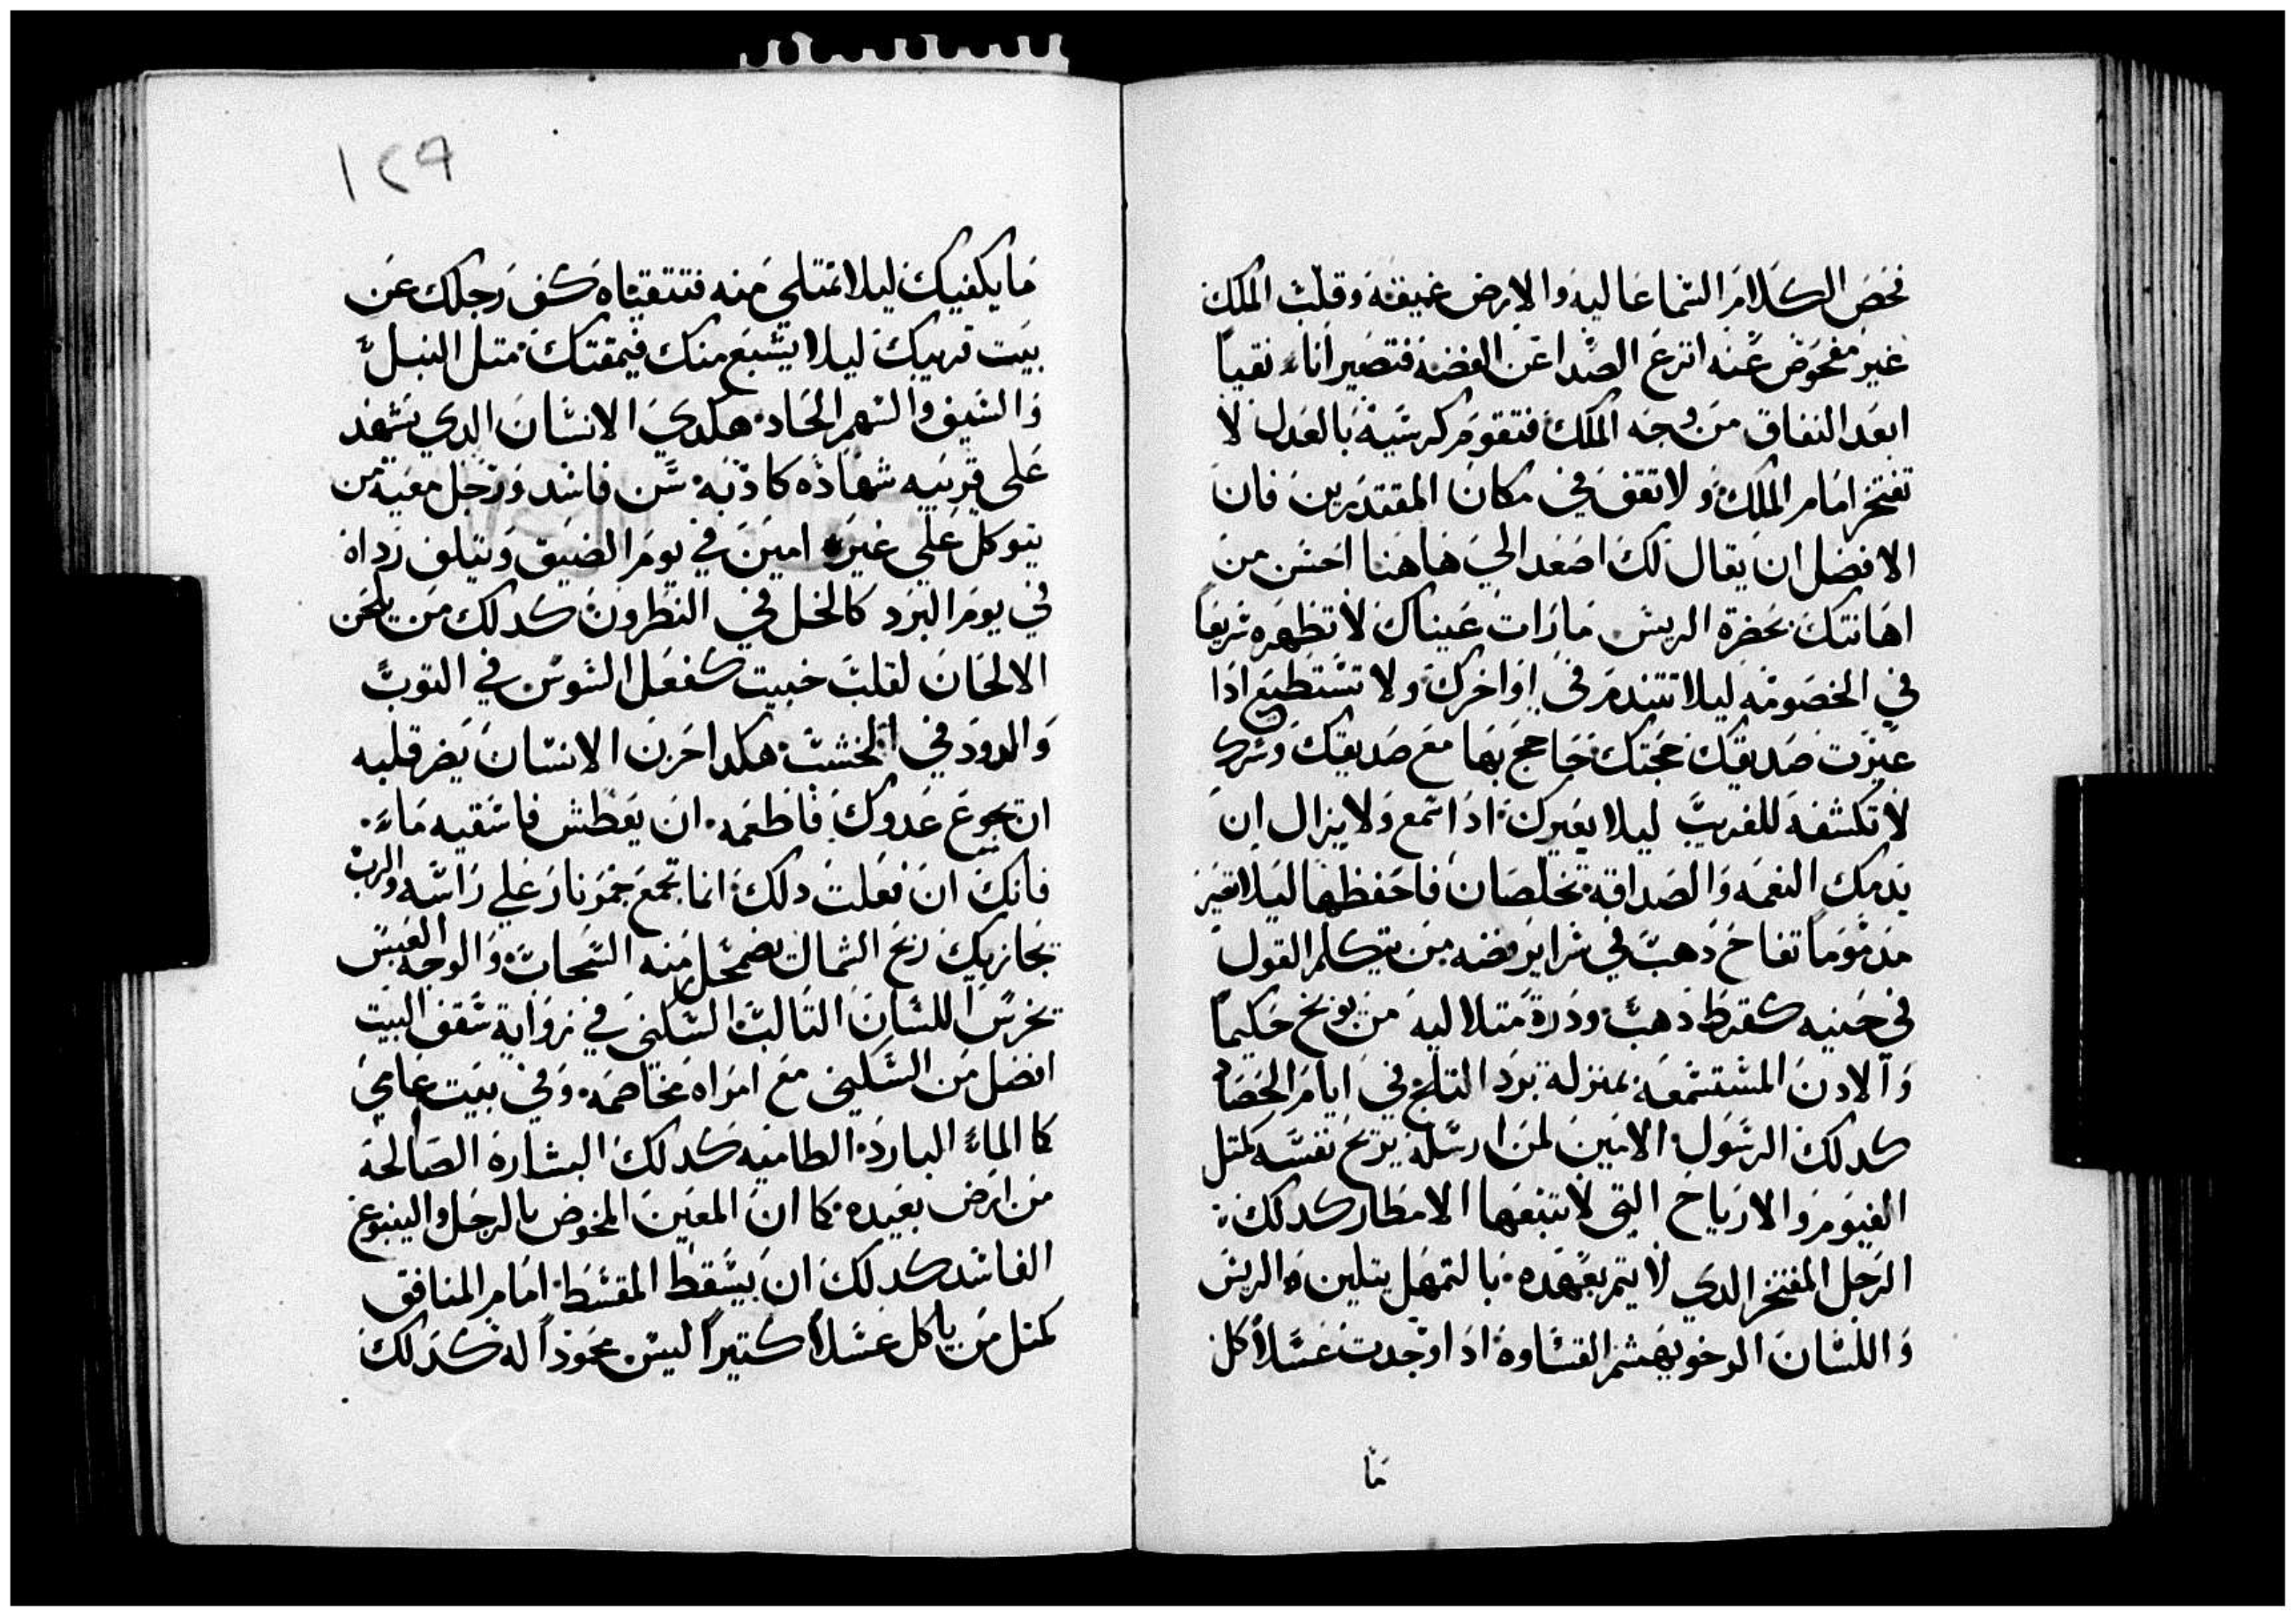 فحص الكلام السما عاليه والارض غميقه وقلب الملك
غير مفحوص عنه انزع الصدا عن الفضه فتصير اناء نقيا
ابعد النفاق من وجه الملك فتقوم كرسيه بالعدل لا
تفتخر امام الملك ولا تقف في مكان المقتدرين فان
الافضل ان يقال لك اصعد الي هاهنا احسن من
اهانتك بحضرة الريس ما رات عيناك لا تظهره سريعا
في الخصومه ليلا تتندم في اواخرك ولا تستطيع اذا
عيرت صديقك حجتك حاجج بها مع صديقك وسرك
لا تكشفه للغريب ليلا يعيرك اذا سمع ولا يزال ان
يدمك النعمه والصداقه تخلصان فاحفظها ليلا تصير
مدموما تفاح دهب في شراير فضه من يتكلم القول
في حينه كقرط دهب ودرة متلاليه من يوبخ حكيما
والادن المستسمعه بمنزلة برد التلج في ايام الحصاد
كدلك الرسول الامين لمن ارسله يريح نفسه كمتل
الغيوم والارياح التي لا تتبعها الامطار كدلك
الرجل المفتخر الدي لا يتم بعهده بالتمهل يتلين الريس
واللسان الرخو يهشم القساوه ادا وجدت عسلا كل
ما
١٢٩
ما يكفيك ليلا تمتلي منه فتتقيااه كف رجلك عن
بيت قريبك ليلا يشبع منك فيمقتك متل النبل
والسيف والسهم الحاد هكدي الانسان الدي يشهد
على قريبه شهاده كادبه سن فاسد ورجل معيه من
يتوكل علي غير امين في يوم الضيق ويتلف رداه
في يوم البرد كالخل في النطرون كدلك من يلحن
الالحان لقلب خبيت كفعل السوس في التوب
والدود في الخشب هكدا حزن الانسان يضر قلبه
ان يجوع عدوك فاطعمه ان يعطش فاسقيه ماء
فانك ان فعلت دلك انما تجمع جمر نار علي راسه والرب
يجازيك ريح الشمال يضمحل منه السحاب والوجه العبس
يخرس اللسان التالب السكني في زواية سقف البيت
افضل من السكني مع امراه مخاصمه وفي بيت عامي
كا الماء البارد الطاميه كدلك البشاره الصالحه
من ارض بعيده كما ان المعين المخوض بالرجل والينبوع
الفاسد كدلك ان يسقط المقسط امام المنافق
كمتل من ياكل عسلا كتيرا ليس بمجود له كدلك